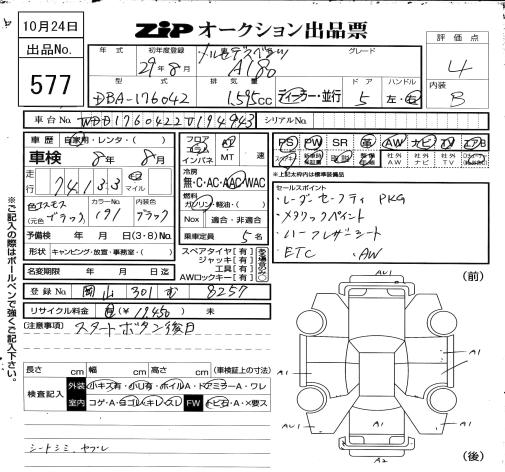 10月24日
ZiP オークション出品票
出品No.
577
年式 初年度登録 グレード
29年8月 メルセデスベンツ A180
評価点
4
内装
B
型式 排気量 ドア ハンドル
DBA-176042 1,595cc ディーラー・並行 5 左・右
車台No. WDD1760422V194943 シリアルNo.
車歴 自家用・レンタ・( )
車検 8年8月
走行 74133 km マイル
色 コスモス カラーNo. 内装色
(元色 ブラック) 191 ブラック
予備検 年 月 日(3・8)No.
形状 キャンピング・放置・事務室・( )
名変期限 年 月 日迄
フロア コラム インパネ AT MT 速
冷房
無・C・AC・AAC・WAC
燃料
ガソリン・軽油・( )
Nox 適合・非適合
乗車定員 5名
スペアタイヤ[有]
ジャッキ[有]
工具[有]
AWロックキー[有]
PS PW SR 革 AW ナビ TV エアB
社外AW 社外ナビ 社外TV
※上記太枠内は標準装備品
セールスポイント
・レーダーセーフティPKG
・メタリックペイント
・ハーフレザーシート
・ETC ・AW
登録No. 岡山 301 8257
リサイクル料金 有(¥17,450) 未
(注意事項)
スタートボタン後日
長さ cm 幅 cm 高さ cm (車検証上の寸法)
検査記入 外装 小キズ有・小U有・ホイルA・ドアミラーA・ワレ
室内 コゲ・A・ヨゴレ・キレ・スレ FW トビ石・A・X要ス
シートシミ、ヤブレ
※ご記入の際はボールペンで強くご記入下さい。
(前)
AU1
A1
A1
A1
AU1
A1
A2
(後)